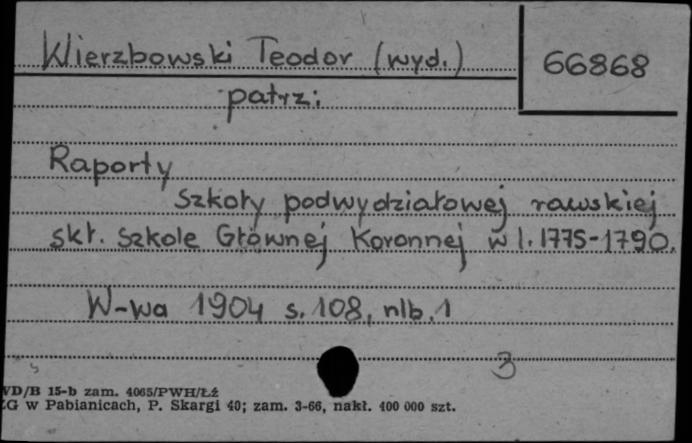 Wierzbowski Teodor (wyd.)
66868
patrz:
Raporty
Szkoły podwydziałowej rawskiej
skł. Szkole Głównej Koronnej w l. 1775-1790.
W-wa 1904 s. 108, nlb. 1
3
VD/B 15-b zam. 4065/PWH/Łź
G w Pabianicach, P. Skargi 40; zam. 3-66, nakł. 400 000 szt.